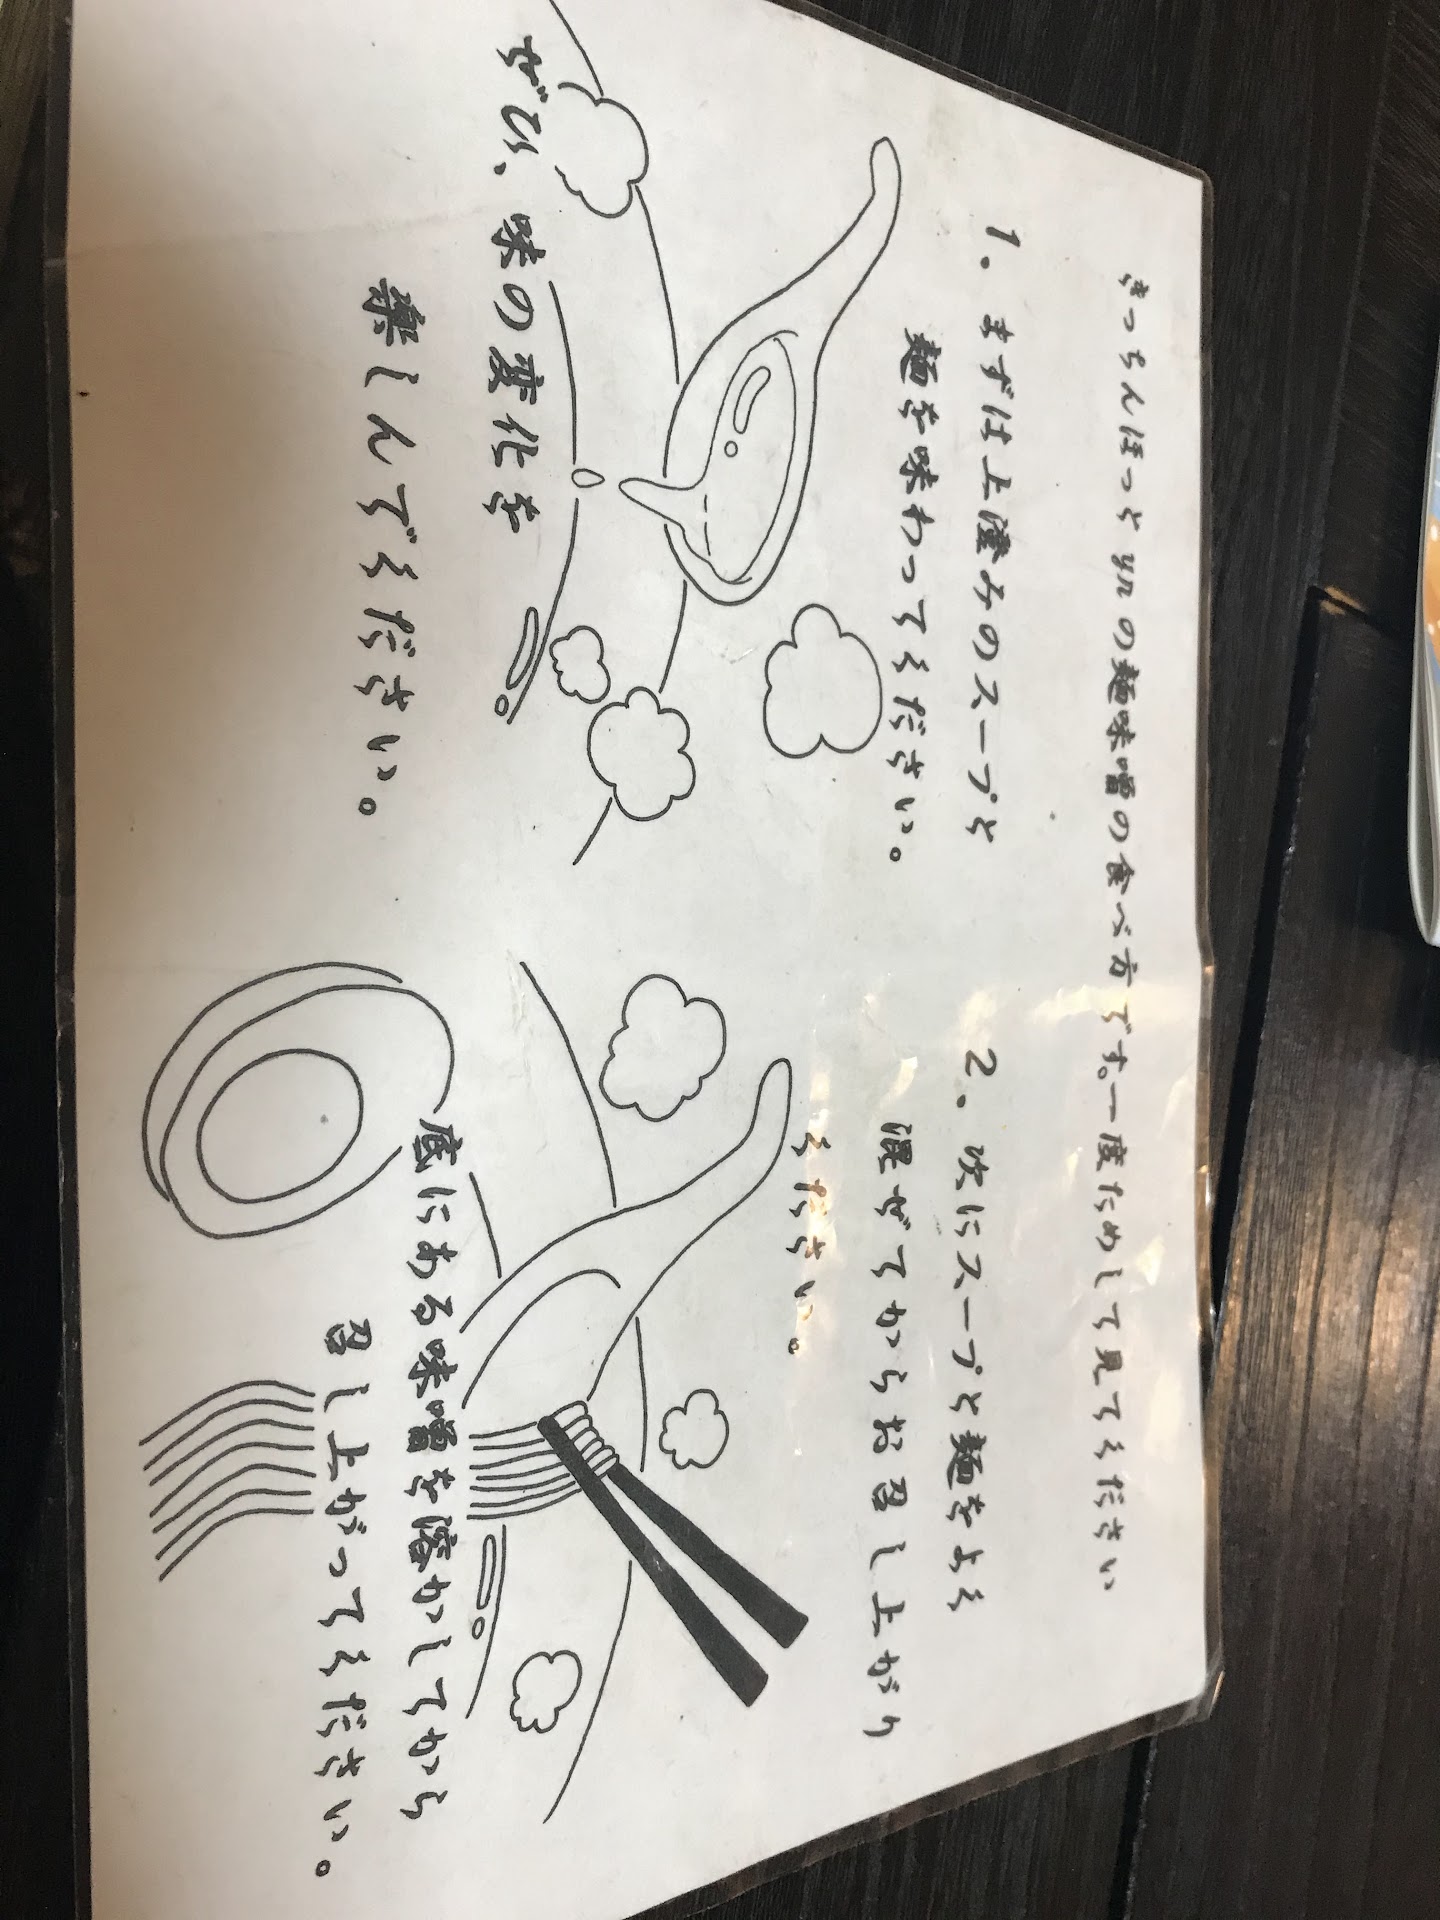 きっちんほっとynの麺味噌の食べ方です。一度ためして見てください
1. まずは上澄みのスープと
麺を味わってください。
ぜひ、味の変化を
楽しんでください。
2. 次にスープと麺をよく
混ぜてからお召し上がり
ください。
底にある味噌を溶かしてから
召し上がってください。